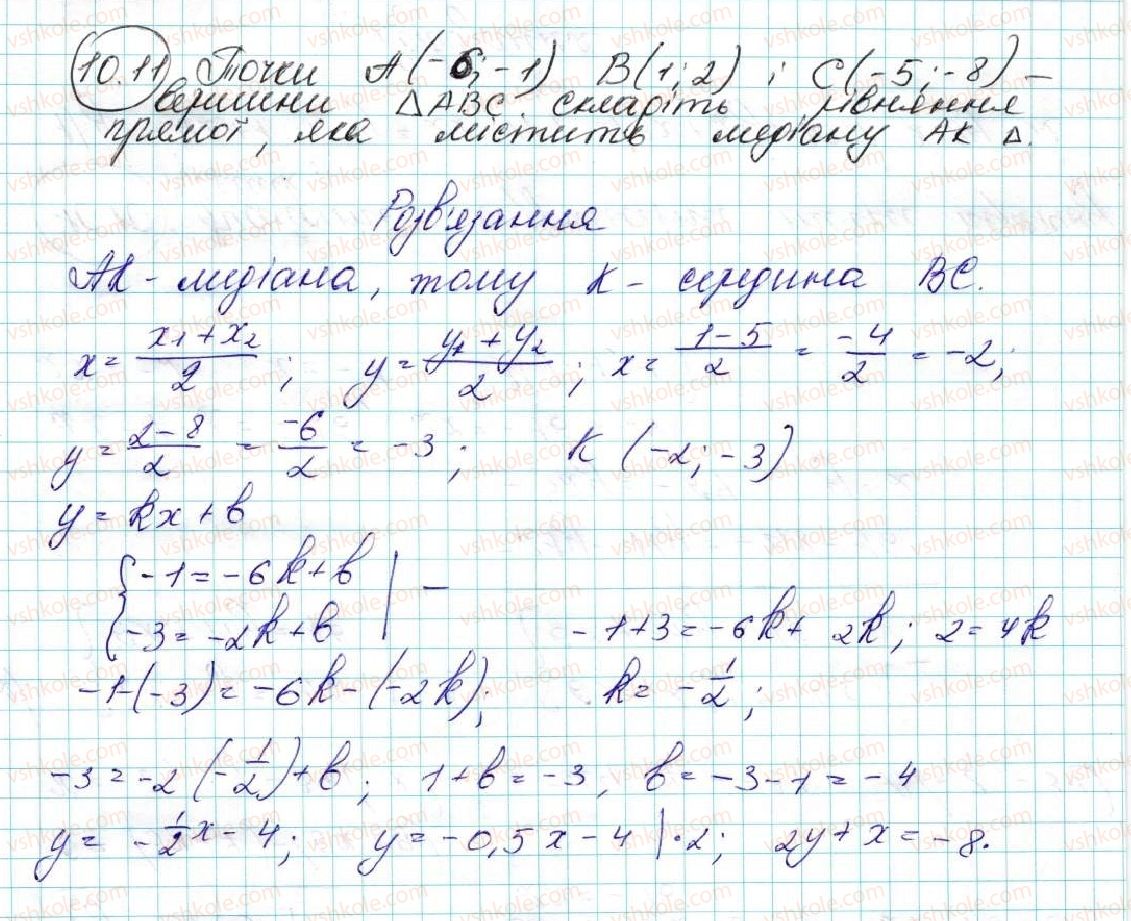 10.11 Точки A(-6; -1) B(1; 2) і C(-5; -8) –
вершини △ABC складіть рівняння
прямої, яка містить медіану AK △.
Розв'язання
AK - медіана, тому K - середина BC.
x = (x₁ + x₂)/2 ; y = (y₁ + y₂)/2 ; x = (1 - 5)/2 = -4/2 = -2;
y = (2 - 8)/2 = -6/2 = -3 ; K (-2; -3)
y = kx + b
{ -1 = -6k + b | –
{ -3 = -2k + b | -1 + 3 = -6k + 2k; 2 = 4k
-1 - (-3) = -6k - (-2k); k = -1/2 ;
-3 = -2 (-1/2) + b ; 1 + b = -3, b = -3 - 1 = -4
y = -1/2 x - 4; y = -0,5x - 4 | · 2; 2y + x = -8.
vshkole.com